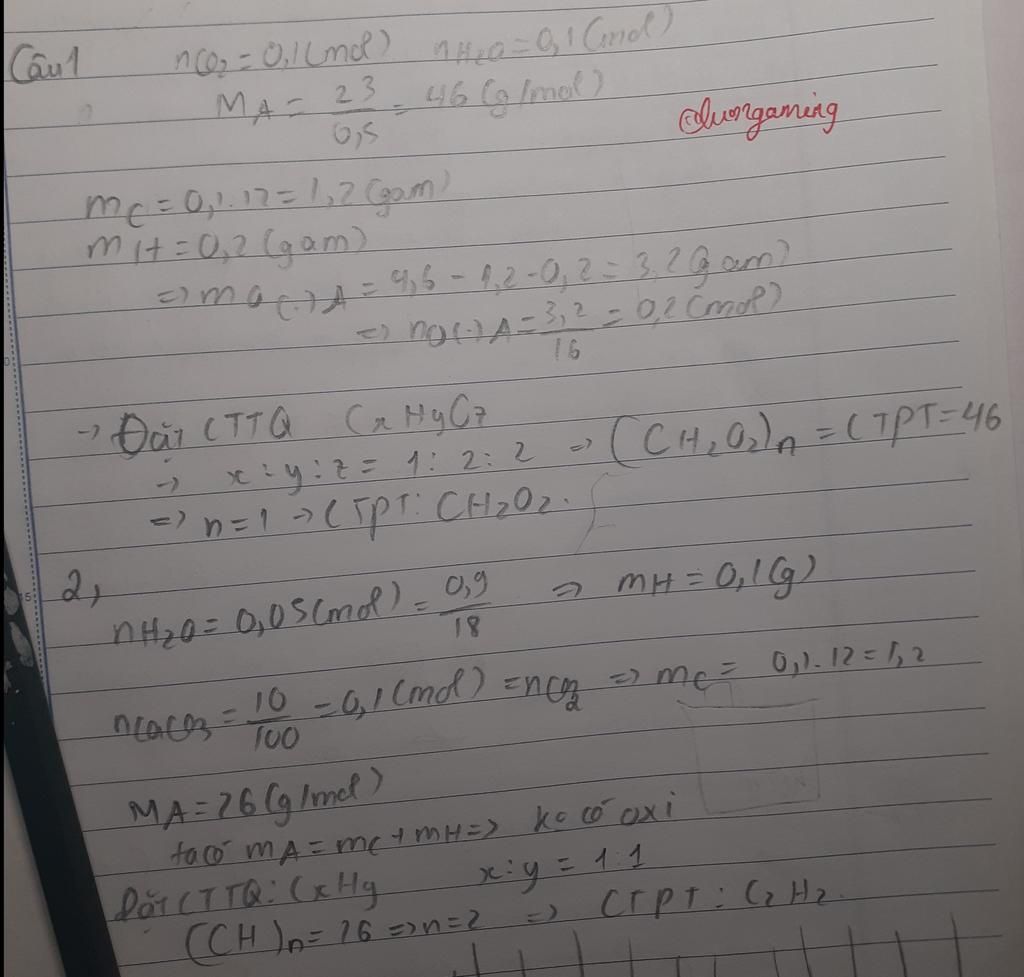 Câu 1 nCO2 = 0,1 (mol) nH2O = 0,1 (mol)
MA = 23/0,5 = 46 (g/mol)
@luongaming
mC = 0,1.12 = 1,2 (gam)
mH = 0,2 (gam)
=> mO(-) A = 4,6 - 1,2 - 0,2 = 3,2 (gam)
=> nO(-) A = 3,2/16 = 0,2 (mol)
-> Đặt CTTQ CxHyOz
-> x : y : z = 1 : 2 : 2 => (CH2O2)n = CTPT = 46
=> n = 1 -> CTPT: CH2O2.
2,
nH2O = 0,05 (mol) = 0,9/18 => mH = 0,1 (g)
nCaCO3 = 10/100 = 0,1 (mol) = nCO2 => mC = 0,1.12 = 1,2
MA = 26 (g/mol)
ta có mA = mC + mH => ko có oxi
Đặt CTTQ: CxHy x : y = 1 : 1
(CH)n = 26 => n = 2 => CTPT : C2H2.